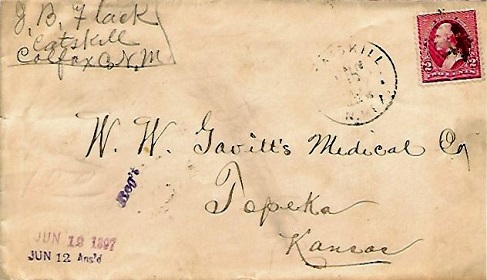 J. B. Flack
Catskill
Colfax Co N.M.
CATSKILL
N. MEX.
2 2
W. W. Gavitt's Medical Co
Rec't
Topeka
Kansas
JUN 12 1897
JUN 12 Ans'd